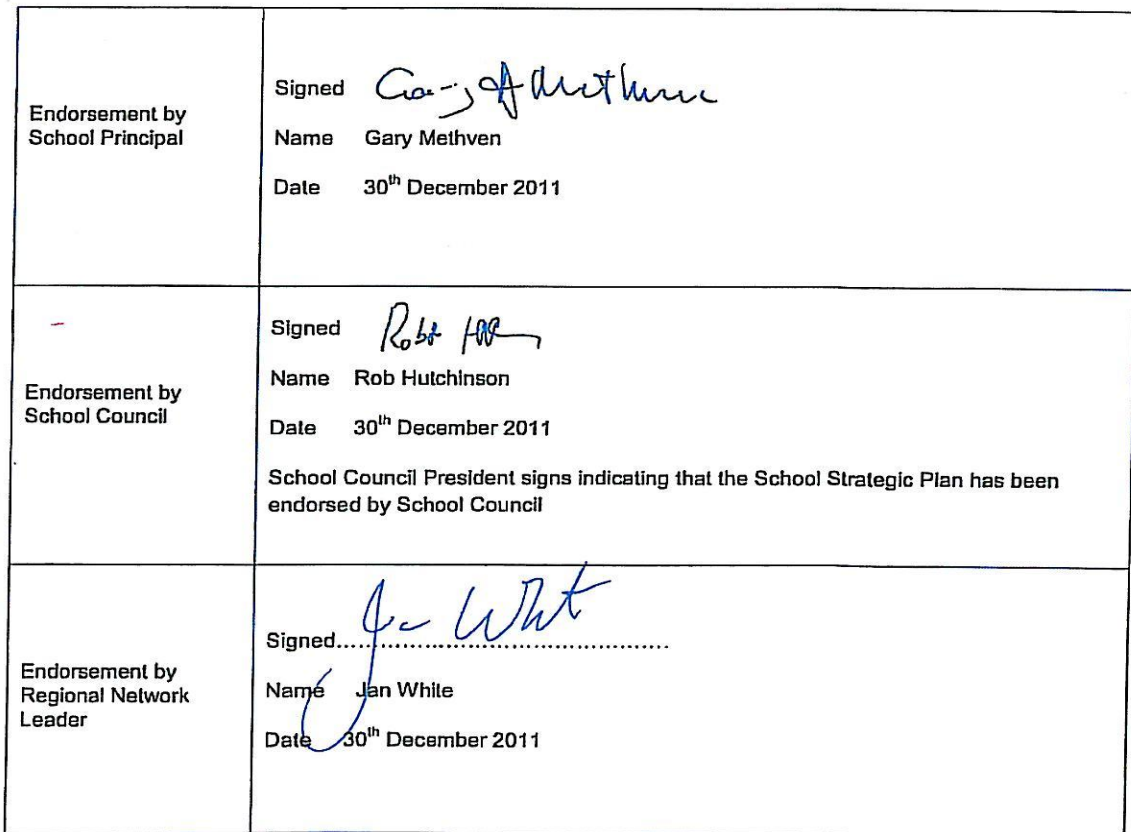 Endorsement by
School Principal
Signed
Name Gary Methven
Date 30th December 2011
Endorsement by
School Council
Signed
Name Rob Hutchinson
Date 30th December 2011
School Council President signs indicating that the School Strategic Plan has been
endorsed by School Council
Endorsement by
Regional Network
Leader
Signed.................................................
Name Jan White
Date 30th December 2011